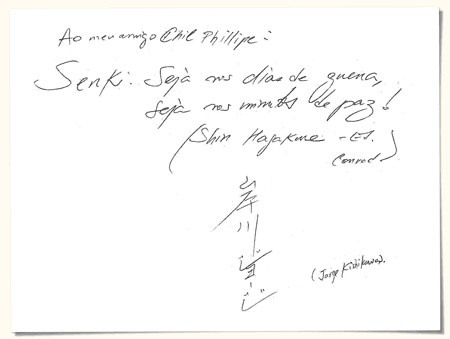 Ao meu amigo Chil Phillipe:
Senki: Seja nos dias de guerra,
seja nos minutos de paz!
(Shin Hagakure - Ed.
Conrad)
岸川ジョージ
(Jorge Kishikawa).